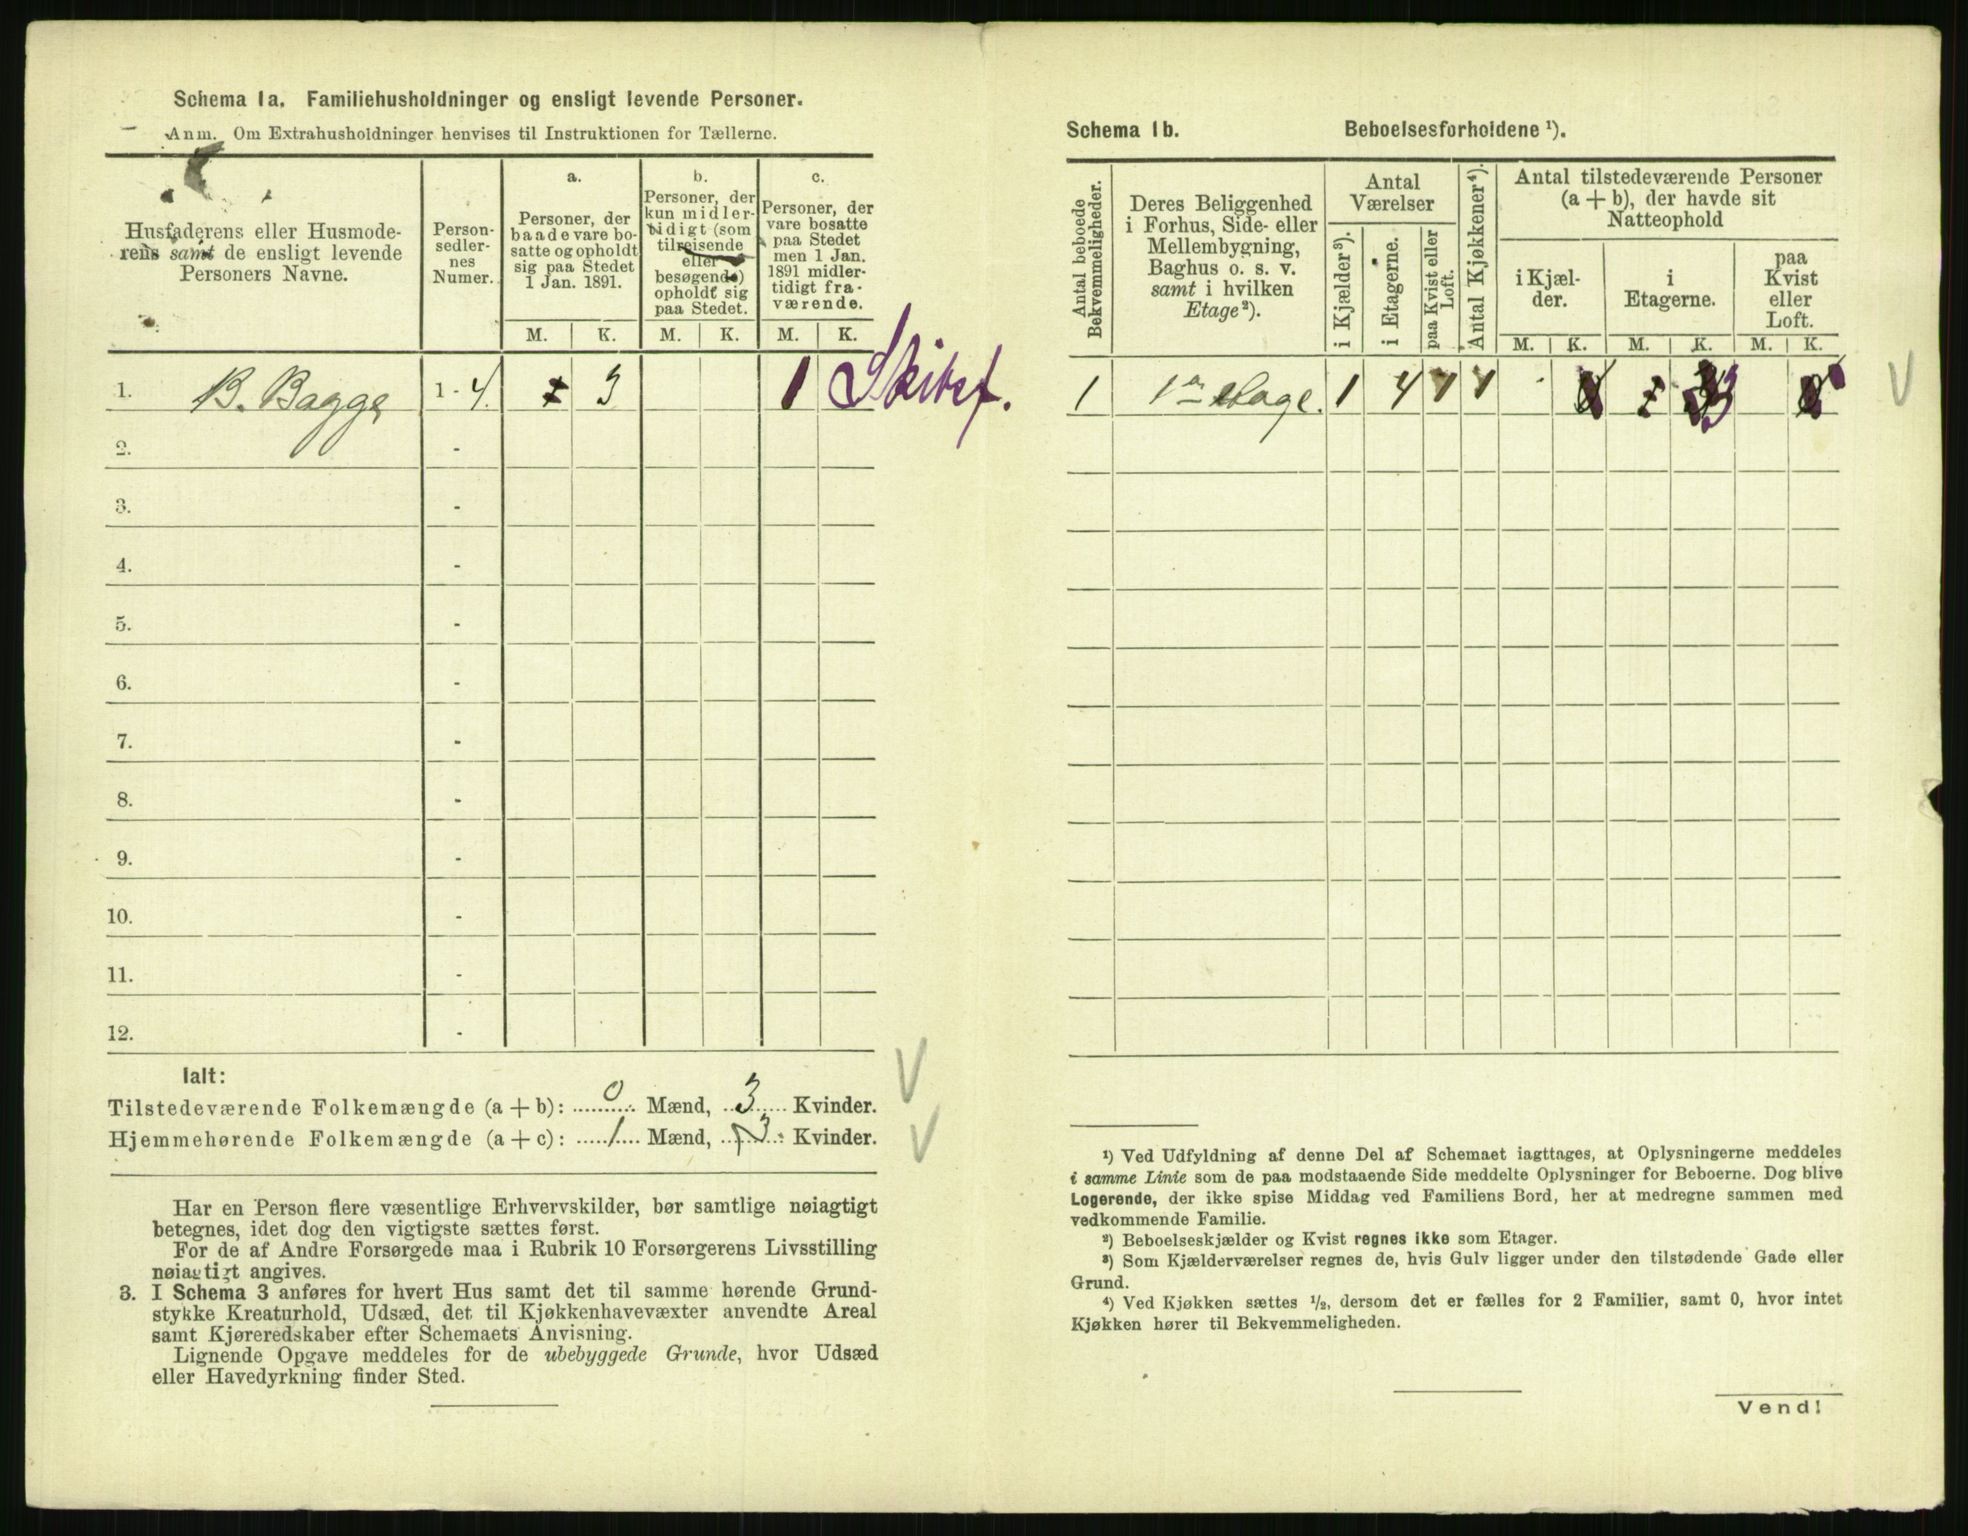 Schema 1a. Familiehusholdninger og ensligt levende Personer.
Anm. Om Extrahusholdninger henvises til Instruktionen for Tællerne.
Husfaderens eller Husmode-
rens samt de ensligt levende
Personers Navne.
Person-
sedler-
nes
Numer.
a.
Personer, der
baade vare bo-
satte og opholdt
sig paa Stedet
1 Jan. 1891.
b.
Personer, der
kun midler-
tidigt (som
tilreisende
eller
besøgende)
opholdt sig
paa Stedet.
c.
Personer, der
vare bosatte
paa Stedet
men 1 Jan.
1891 midler-
tidigt fra-
værende.
M. K. M. K. M. K.
1. B. Bagge 1 - 4. 3 1 Skibsf.
2. -
3. -
4. -
5. -
6. -
7. -
8. -
9. -
10. -
11. -
12. -
Ialt:
Tilstedeværende Folkemængde (a + b): 0 Mænd, 3 Kvinder.
Hjemmehørende Folkemængde (a + c): 1 Mænd, 3 Kvinder.
Har en Person flere væsentlige Erhvervskilder, bør samtlige nøiagtigt
betegnes, idet dog den vigtigste sættes først.
For de af Andre Forsørgede maa i Rubrik 10 Forsørgerens Livsstilling
nøiagtigt angives.
3. I Schema 3 anføres for hvert Hus samt det til samme hørende Grund-
stykke Kreaturhold, Udsæd, det til Kjøkkenhavevæxter anvendte Areal
samt Kjøreredskaber efter Schemaets Anvisning.
Lignende Opgave meddeles for de ubebyggede Grunde, hvor Udsæd
eller Havedyrkning finder Sted.
Schema 1b. Beboelsesforholdene ¹).
Antal beboede
Bekvemmeligheder.
Deres Beliggenhed
i Forhus, Side- eller
Mellembygning,
Baghus o. s. v.
samt i hvilken
Etage ²).
Antal
Værelser
i Kjælder ³).
i Etagerne.
paa Kvist eller
Loft.
Antal Kjøkkener ⁴).
Antal tilstedeværende Personer
(a + b), der havde sit
Natteophold
i Kjæl-
der.
i
Etagerne.
paa
Kvist
eller
Loft.
M. K. M. K. M. K.
1 1ste Etage. 1 4 1 1 3
¹) Ved Udfyldning af denne Del af Schemaet iagttages, at Oplysningerne meddeles
i samme Linie som de paa modstaaende Side meddelte Oplysninger for Beboerne. Dog blive
Logerende, der ikke spise Middag ved Familiens Bord, her at medregne sammen med
vedkommende Familie.
²) Beboelseskjælder og Kvist regnes ikke som Etager.
³) Som Kjælderværelser regnes de, hvis Gulv ligger under den tilstødende Gade eller
Grund.
⁴) Ved Kjøkken sættes ½, dersom det er fælles for 2 Familier, samt 0, hvor intet
Kjøkken hører til Bekvemmeligheden.
Vend!